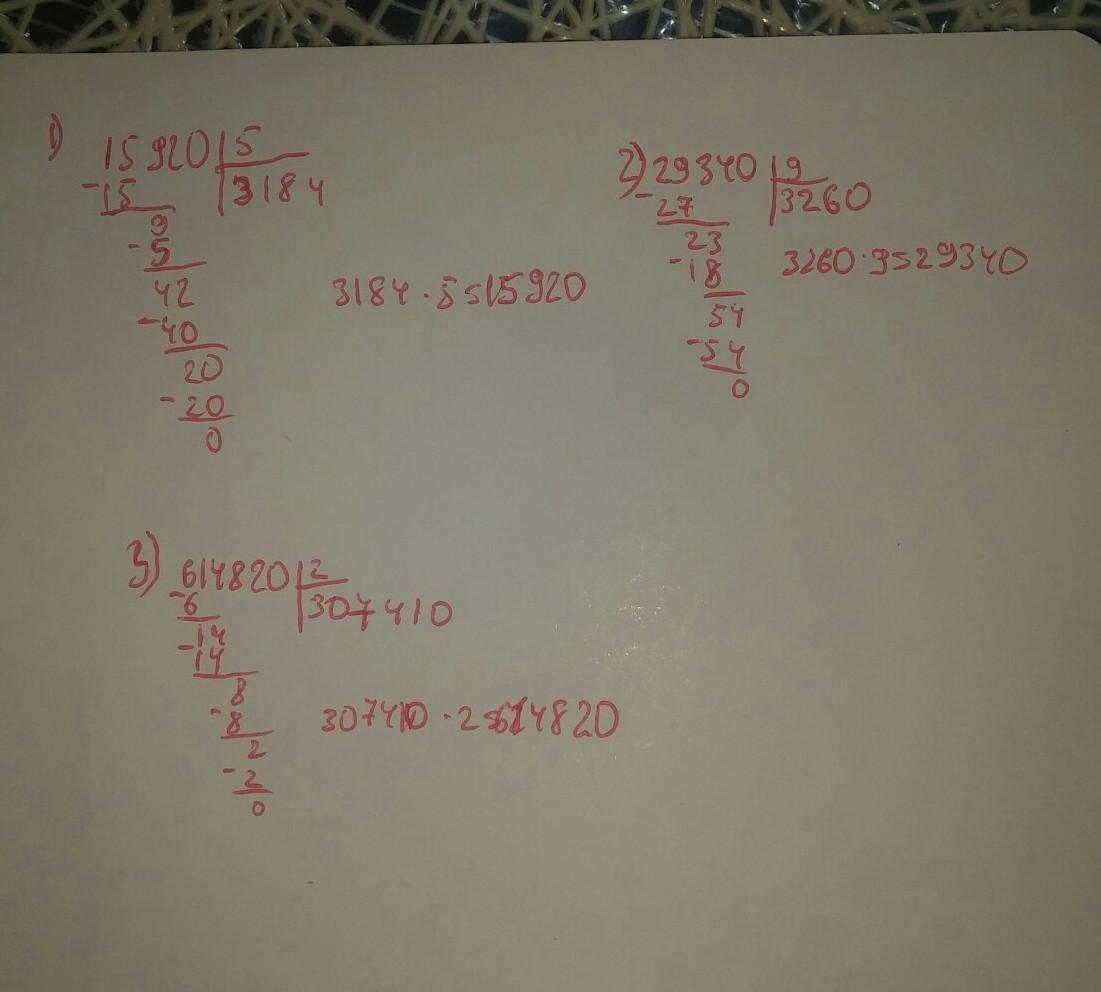 1) 15920 | 5
-15 | 3184
9
-5
42
-40
20
-20
0
3184 · 5 = 15920
2) 29340 | 9
-27 | 3260
23
-18
54
-54
0
3260 · 9 = 29340
3) 614820 | 2
-6 | 307410
14
-14
8
-8
2
-2
0
307410 · 2 = 614820